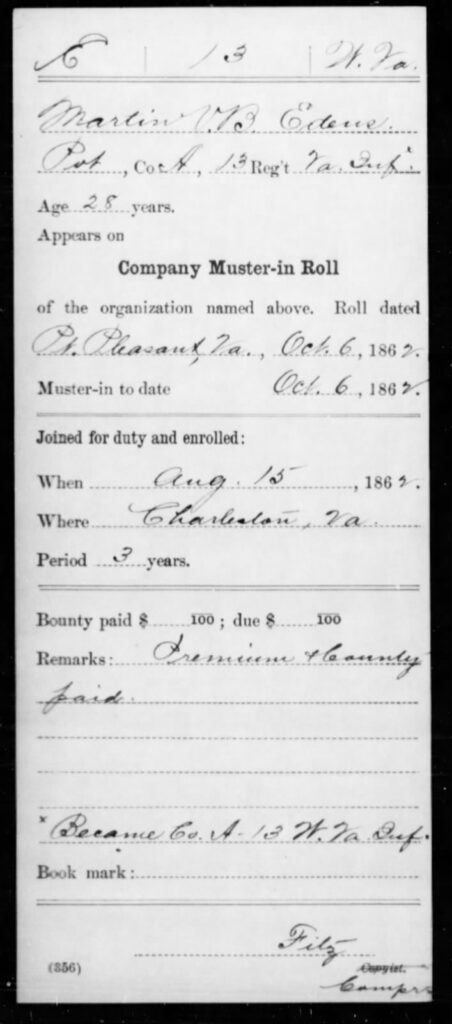 E | 13 | W. Va.
Martin V. B. Edens.
Pvt, Co. A, 13 Reg't Va. Inf.*
Age 28 years.
Appears on
Company Muster-in Roll
of the organization named above. Roll dated
Pt. Pleasant, Va., Oct. 6, 1862.
Muster-in to date Oct. 6, 1862.
Joined for duty and enrolled:
When Aug. 15, 1862.
Where Charleston, Va.
Period 3 years.
Bounty paid $ 100; due $ 100
Remarks: Premium & County
paid.
* Became Co. A 13 W. Va. Inf.
Book mark:
Fitz
(356) Copyist.